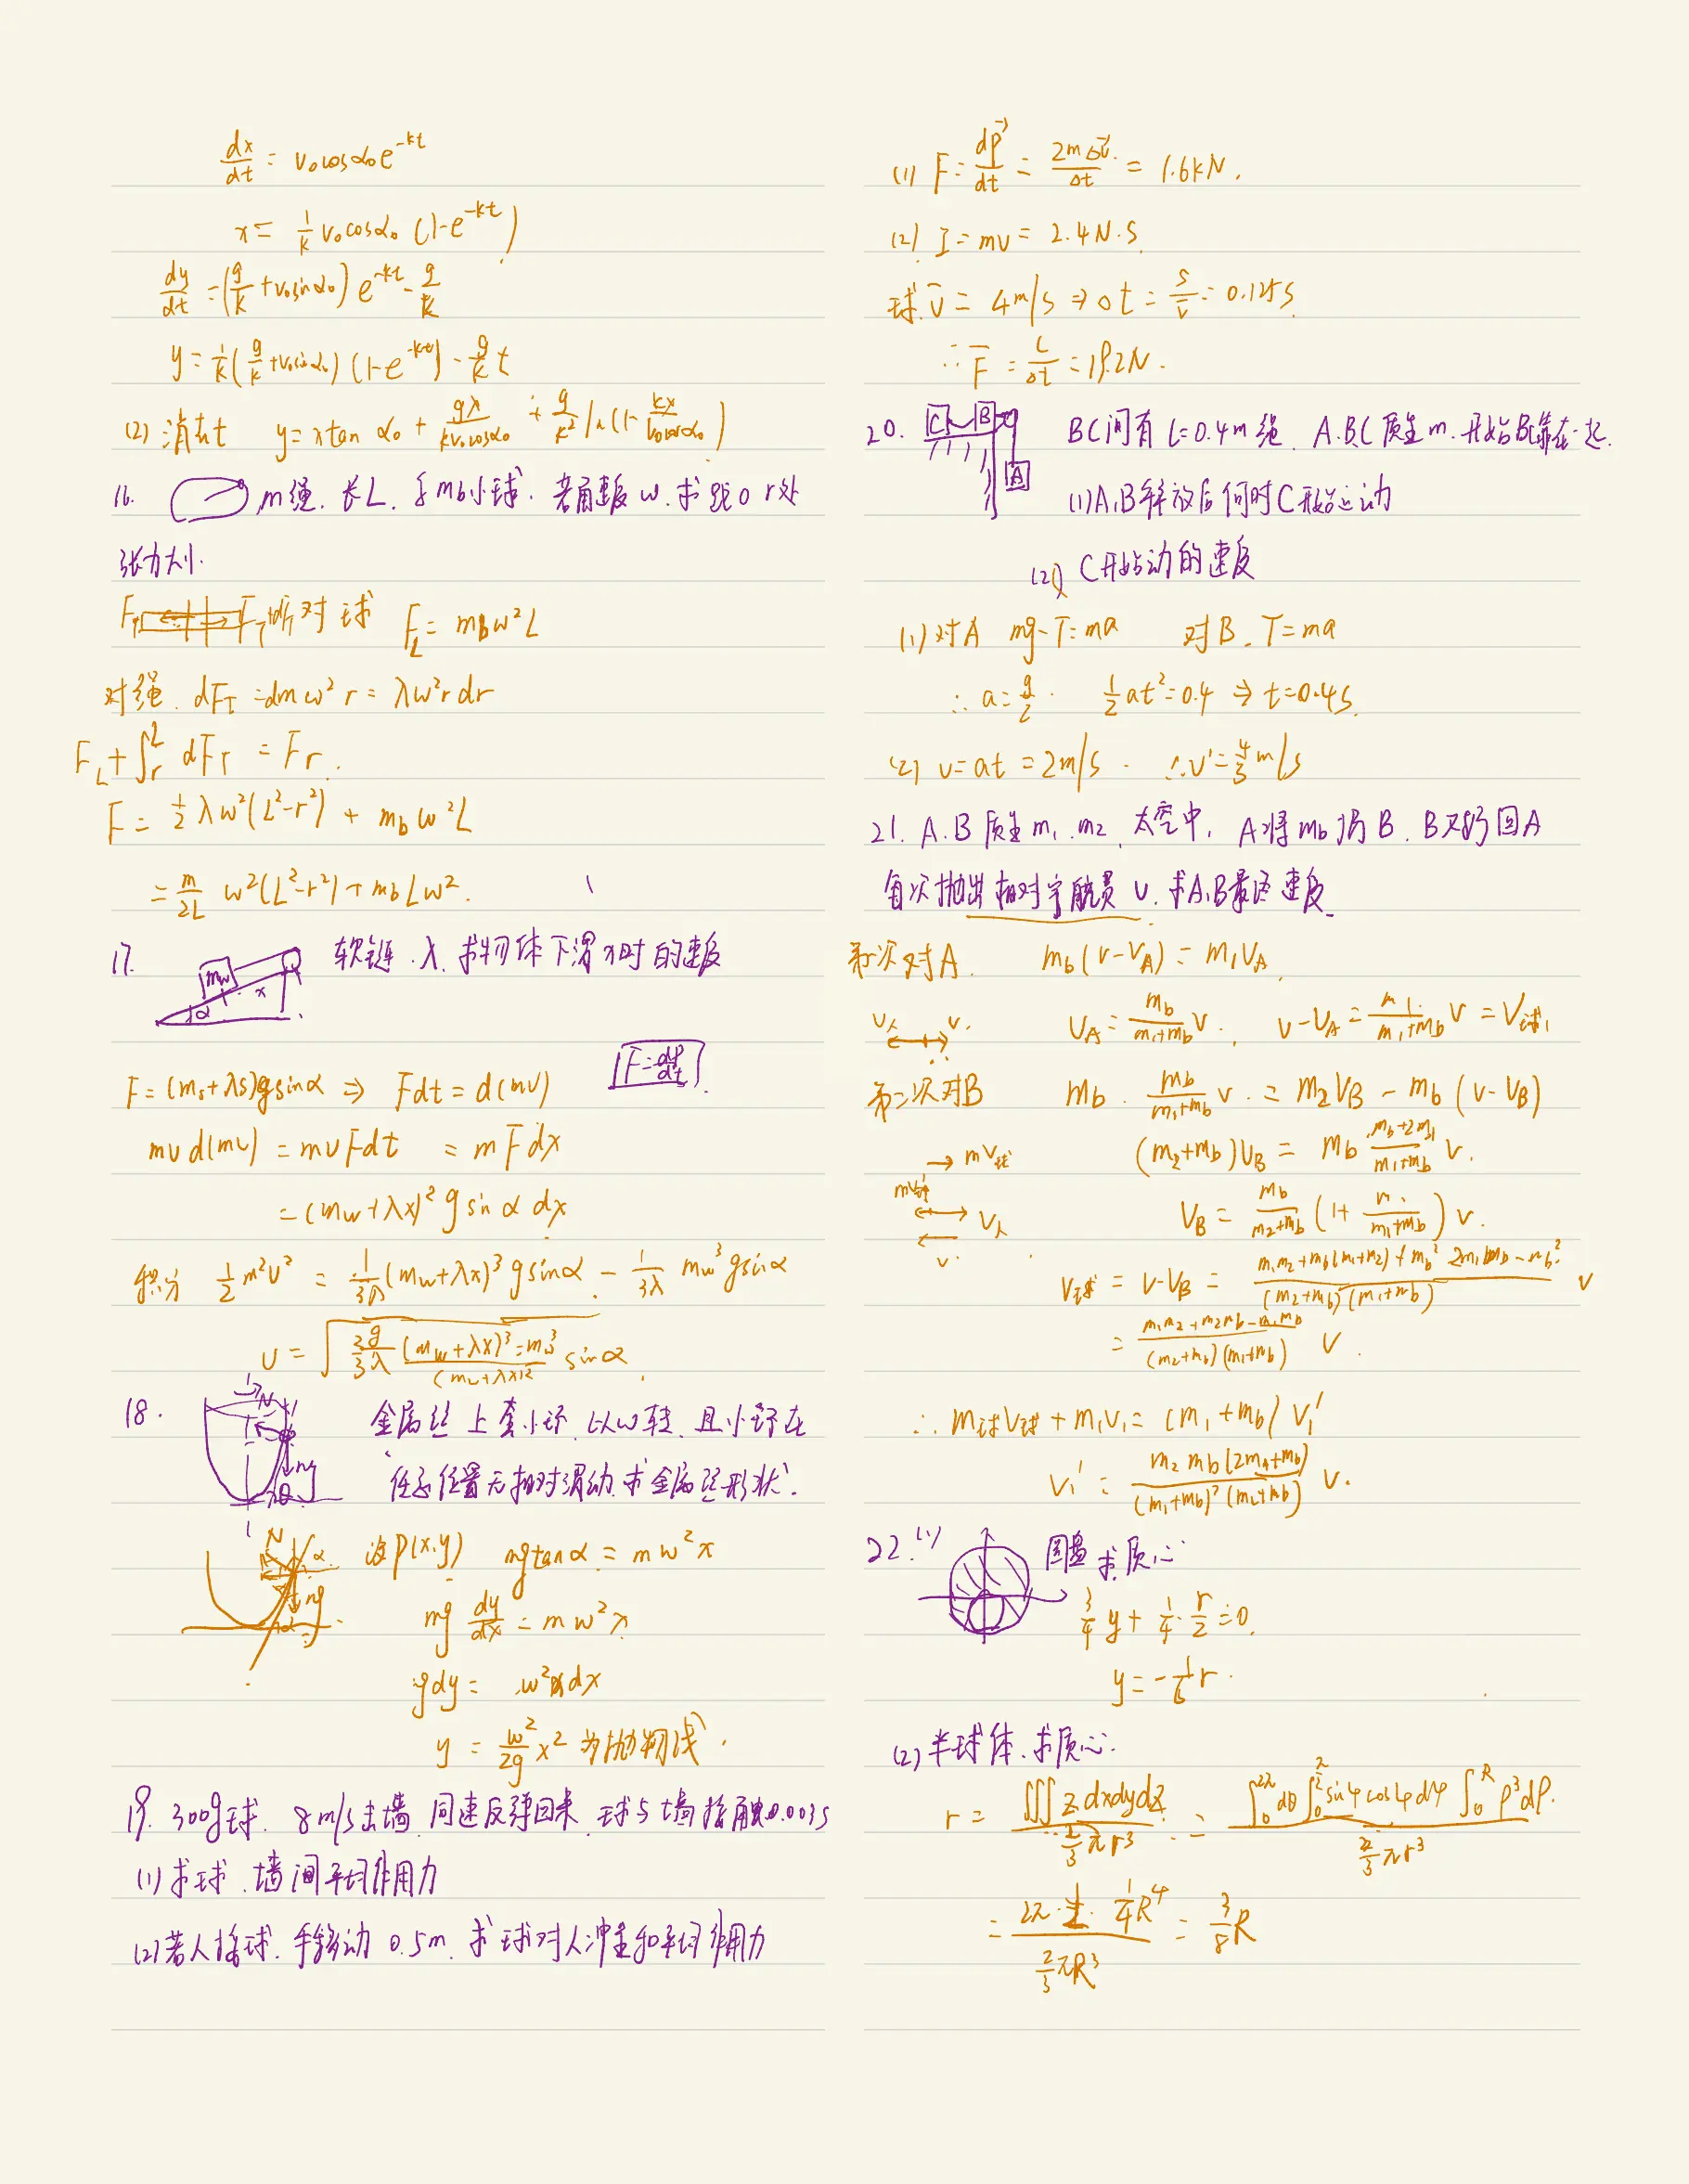 dx/dt = v₀cosα₀e^{-kt}
x = 1/k v₀cosα₀ (1-e^{-kt})
dy/dt = (g/k + v₀sinα₀) e^{-kt} - g/k
y = 1/k (g/k + v₀sinα₀) (1-e^{-kt}) - g/k t
(2) 消去t y = x tan α₀ + gx/(kv₀cosα₀) + g/k² ln(1- kx/(v₀cosα₀))
16. m绳. 长L. 系mb小球. 若角速度w. 求距O r处
张力大小.
F_T F_T 所对球 F_L = mb w²L
对绳. dF_T = dm w² r = λw²r dr
F_L + ∫_r^L dF_T = F_r.
F = 1/2 λw²(L²-r²) + mb w²L
= m/2L w²(L²-r²) + mb L w².
17. mw α x 软链. λ. 求物体下滑x时的速度
F = (m₀+λs)g sinα ⇒ Fdt = d(mv) F = dp/dt
mv d(mv) = mvFdt = mFdx
= (mw+λx)² g sinα dx
积分 1/2 m²v² = 1/3λ (mw+λx)³ g sinα - 1/3λ mw³ g sinα
v = √(2g/3λ ((mw+λx)³ - mw³)/(mw+λx)² sinα.
18. N mg θ 金属丝上套小环. 以w转. 且小环在
任意位置无相对滑动. 求金属丝形状.
N α mg α 设P(x.y) mg tanα = mw²x
mg dy/dx = mw²x
gdy = w²x dx
y = w²/2g x² 为抛物线.
19. 300g球. 8m/s去墙. 同速反弹回来. 球与墙接触0.003s
(1) 求球.墙间平均作用力
(2) 若人接球. 手移动 0.5m. 求球对人冲量和平均作用力
(1) F = dp⃗/dt = 2mΔv⃗/Δt = 1.6kN.
(2) I = mv = 2.4N·S.
球 v̄ = 4m/s ⇒ Δt = s/v̄ = 0.125s.
∴ F̄ = I/Δt = 19.2N.
20. C B A BC间有 l=0.4m绳. A.B.C 质量m. 开始BC靠在一起.
(1) A.B释放后何时C开始运动
(2) C开始动的速度
(1) 对A mg-T=ma 对B. T=ma
∴ a = g/2. 1/2 at² = 0.4 ⇒ t=0.4s.
(2) v=at = 2m/s. ∴ v' = 4/3 m/s
21. A.B 质量 m₁.m₂. 太空中. A将mb扔B. B又扔回A
每次抛出相对宇航员 v. 求A.B最终速度.
第一次对A. mb(v-v_A) = m₁v_A
v_人 v. v_A = mb/(m₁+mb) v. v-v_A = m₁/(m₁+mb) v = V_球₁
第二次对B mb · mb/(m₁+mb) v. = m₂v_B - mb (v-v_B)
mv球 (m₂+mb)v_B = mb (mb+2m₁)/(m₁+mb) v.
mv球 v人 v. v_B = mb/(m₂+mb) (1+ m₁/(m₁+mb)) v.
v球 = v-v_B = (m₁m₂+mb(m₁+m₂)+mb² -2m₁mb-mb²)/((m₂+mb)(m₁+mb)) v
= (m₁m₂+m₂mb-m₁mb)/((m₂+mb)(m₁+mb)) v.
∴ m球v球 + m₁v₁ = (m₁+mb) v₁'
v₁' = m₂mb(2m₁+mb)/((m₁+mb)²(m₂+mb)) v.
22.(1) 圆盘求质心
3/4 y + 1/4 · r/2 = 0.
y = -1/6 r.
(2) 半球体.求质心.
r = ∭z dxdydz / (2/3 πr³) = ∫_0^{2π}dθ ∫_0^{π/2} sinφcosφdφ ∫_0^R ρ³dρ. / (2/3 πr³)
= 2π · 1/2 · 1/4 R⁴ / (2/3 πR³) = 3/8 R